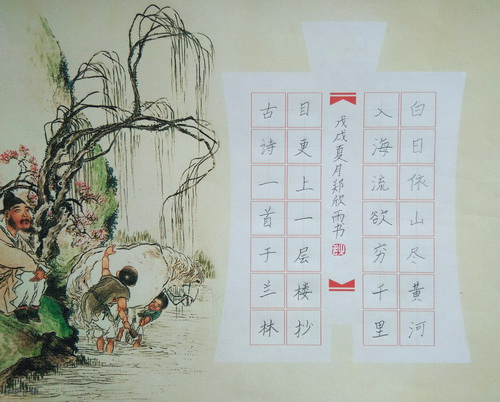 白日依山尽黄河
入海流欲穷千里
目更上一层楼抄
古诗一首于兰林
戊戌夏月郑欣雨书